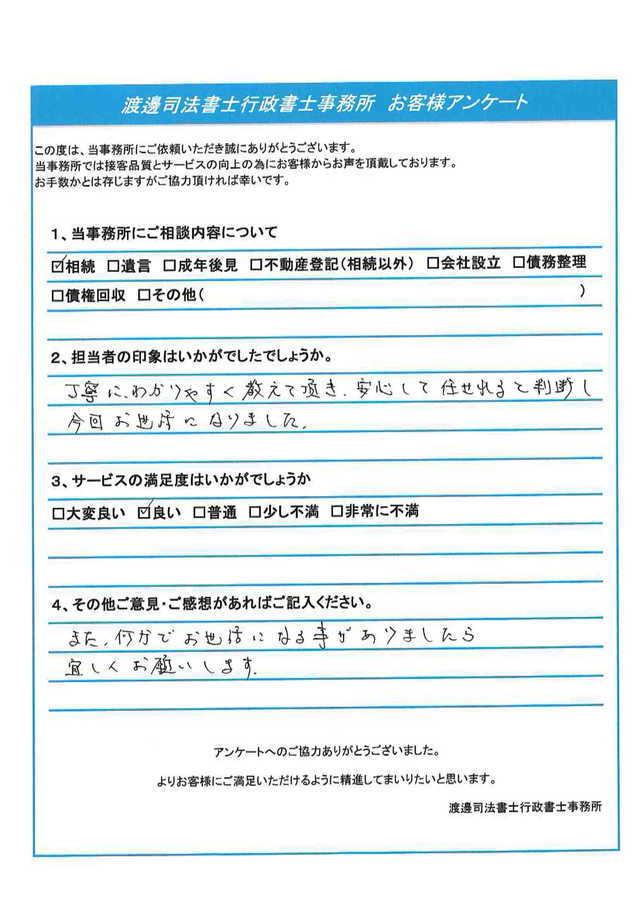 渡邊司法書士行政書士事務所 お客様アンケート
この度は、当事務所にご依頼いただき誠にありがとうございます。
当事務所では接客品質とサービスの向上の為にお客様からお声を頂戴しております。
お手数かとは存じますがご協力頂ければ幸いです。
1、当事務所にご相談内容について
☑相続 □遺言 □成年後見 □不動産登記(相続以外) □会社設立 □債務整理
□債権回収 □その他( )
2、担当者の印象はいかがでしたでしょうか。
丁寧に、わかりやすく教えて頂き、安心して任せれると判断し
今回お世話になりました。
3、サービスの満足度はいかがでしょうか
□大変良い ☑良い □普通 □少し不満 □非常に不満
4、その他ご意見・ご感想があればご記入ください。
また、何かでお世話になる事がありましたら
宜しくお願いします。
アンケートへのご協力ありがとうございました。
よりお客様にご満足いただけるように精進してまいりたいと思います。
渡邊司法書士行政書士事務所